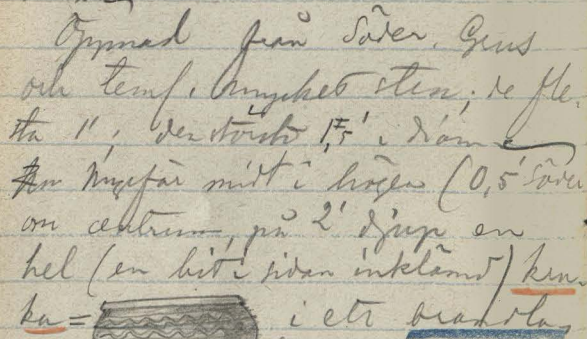 Öppnad från Söder. Grus
och temf. mycket sten; de fle-
sta 1'; den största 1,5' i diam
Ungefär midt i högen (0,5' Söder
om centrum, på 2' djup en
hel (en bit i sidan inklämd) kru-
ka = i ett brandlag